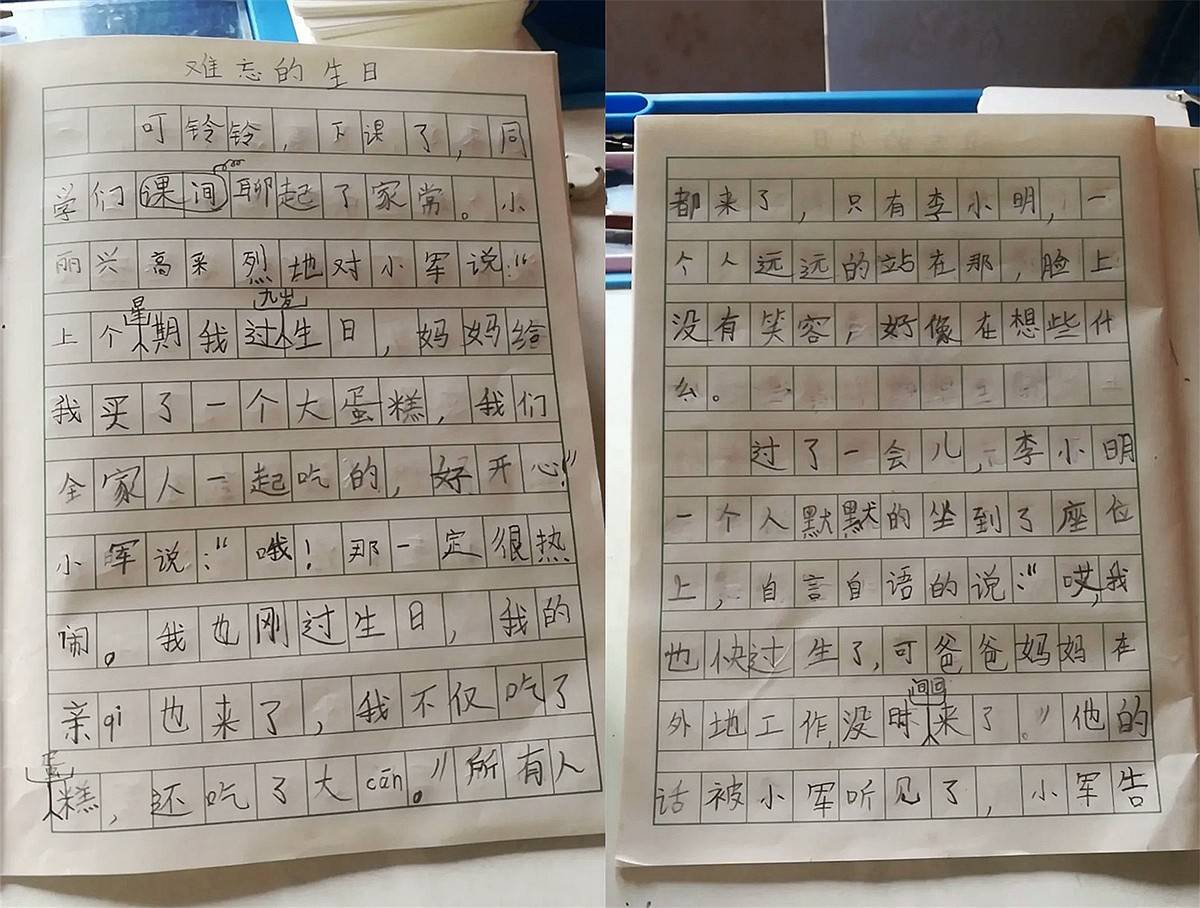 难忘的生日
叮铃铃，下课了，同
学们课间聊起了家常。小
丽兴高采烈地对小军说：“
上个星期我过九岁生日，妈妈给
我买了一个大蛋糕，我们
全家人一起吃的，好开心！”
小军说：“哦！那一定很热
闹。我也刚过生日，我的
亲qi也来了，我不仅吃了
蛋糕，还吃了大cān。”所有人
都来了，只有李小明，一
个人远远的站在那，脸上
没有笑容，好像在想些什
么。
过了一会儿，李小明
一个人默默的坐到了座位
上，自言自语的说：“哎，我
也快过生了，可爸爸妈妈在
外地工作，没时间回来了。”他的
话被小军听见了，小军告